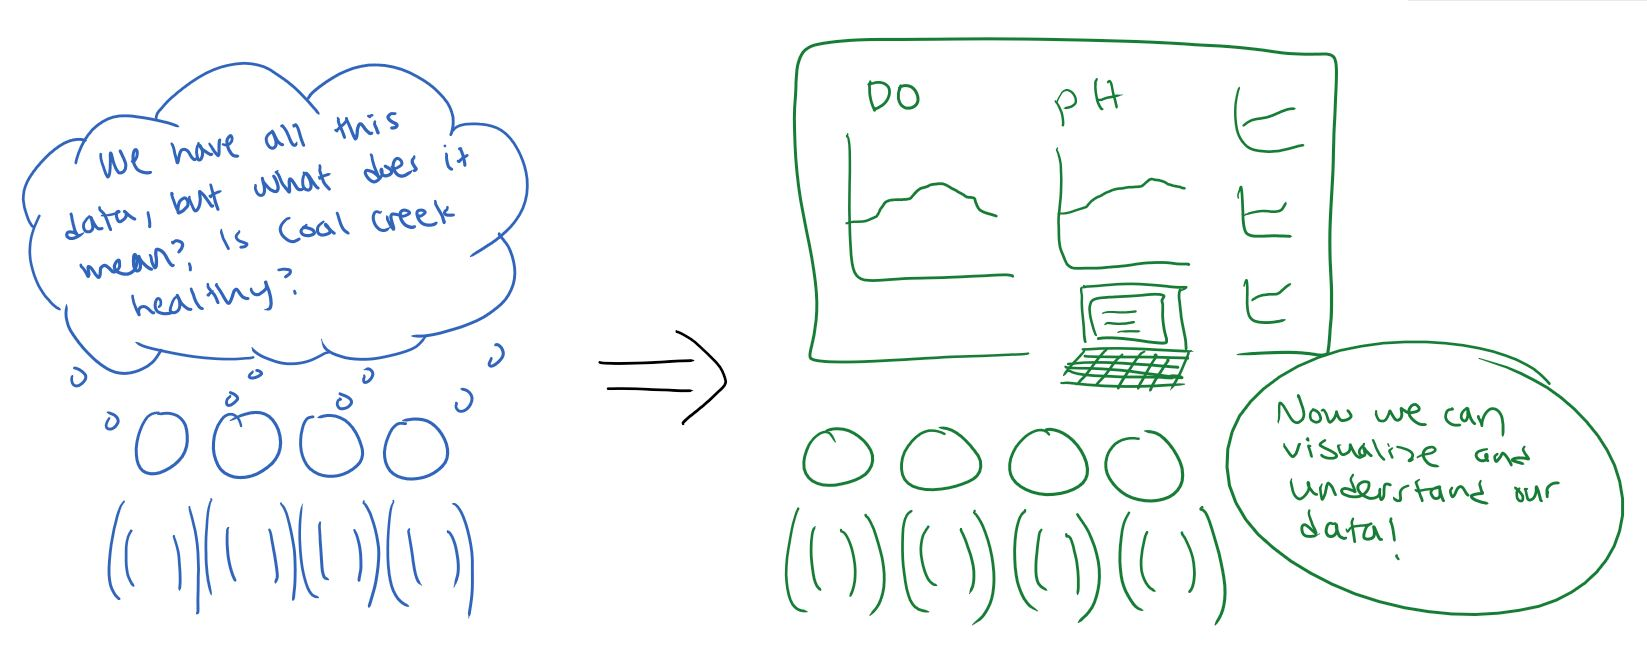 We have all this
data, but what does it
mean? Is Coal creek
healthy?
DO
pH
Now we can
visualize and
understand our
data!